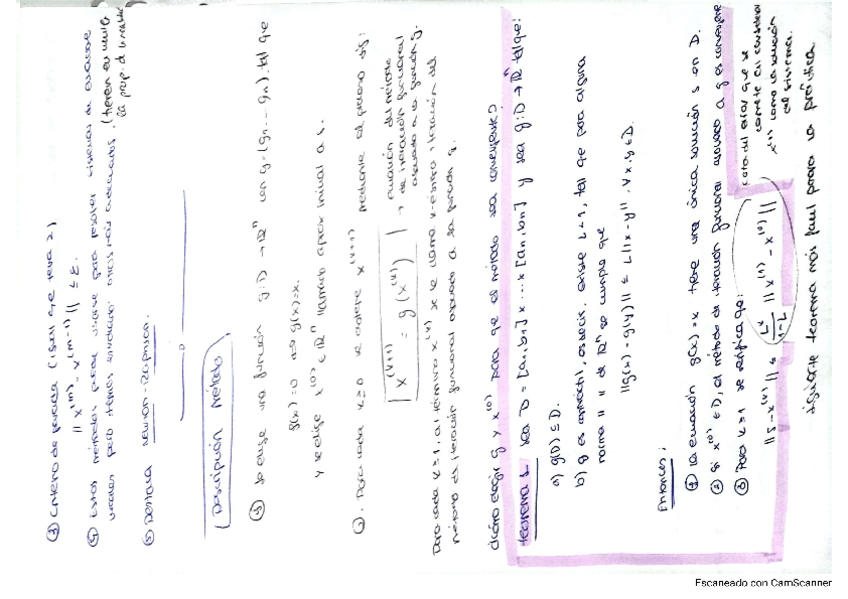 ③ Criterio de parada (igual que tema 2)
|| x^(m) - x^(m-1) || ≤ ε.
④ Estos métodos puede usarse para resolver sistemas de ecuaciones
lineales pero hemos estudiado otros más adecuados. (tienen en cuenta
la prop. de la
⑤ Destaca Newton-Raphson.
Descripción método
① Se elige una función g: D → ℝⁿ con g = (g₁ ... gₙ), tal que
f(x) = 0 ⇔ g(x) = x.
y se elige x^(0) ∈ ℝⁿ llamado aprox inicial a s.
②. Para cada k ≥ 0 se obtiene x^(k+1) mediante el proceso sig:
x^(k+1) = g(x^(k))
→ ecuación del método
de iteración funcional
asociado a la función g.
Para cada k ≥ 1, al término x^(k) se le llama k-ésima iteración del
método de iteración funcional asociado a la función g.
¿Cómo elegir g y x^(0) para que el método sea convergente?
Teorema 1. Sea D = [a₁,b₁] x ... x [aₙ,bₙ] y sea g: D → ℝⁿ tal que:
a) g(D) ⊆ D.
b) g es contráctil, es decir, existe L < 1, tal que para alguna
norma || || de ℝⁿ se cumple que
||g(x) - g(y)|| ≤ L||x - y|| ∀x,y ∈ D.
Entonces:
① La ecuación g(x) = x tiene una única solución s en D.
② Si x^(0) ∈ D, el método de iteración funcional asociado a g es convergente
③ Para k ≥ 1 se verifica que:
|| s - x^(k) || ≤ L^k/(1-L) || x^(1) - x^(0) ||
cota del error que se
comete al considerar
x^(k) como la solución
del sistema.
siguiente teorema más fácil para la práctica
Escaneado con CamScanner